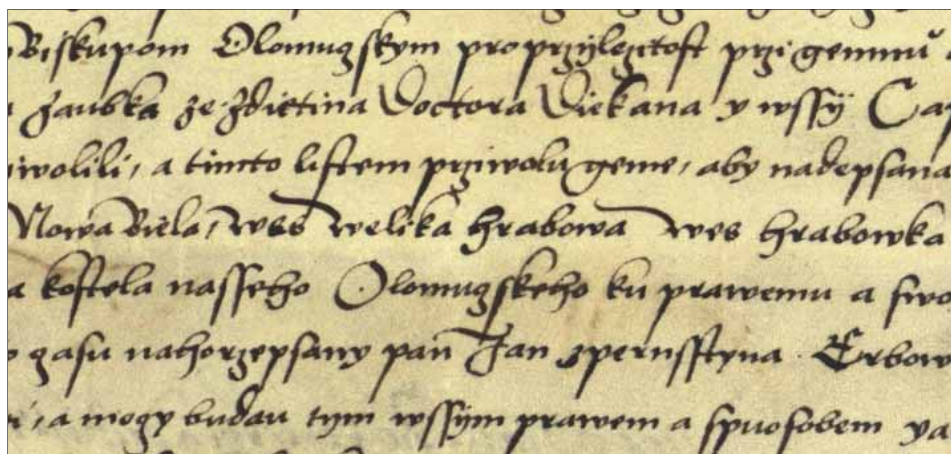 Biskupom Olomuczskym pro przylezitost przi gemmu
Zaubka ze Zdietina Doctora Diekana y wssy Cap
wolili, a timto listem przywolugeme, aby nadepsana
Nowa Biela, wes welika hrabowa wes hrabowka
a kostela nasseho Olomuczskeho ku prawemu a swo
gasu nahorzepsany pan Jan zpernsstyna. Erbow
a mogy budau tym wssym prawem a spuosobem ya